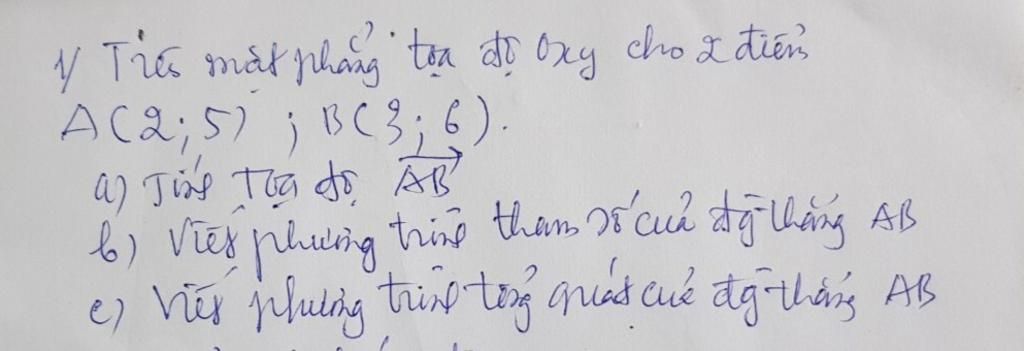 1/ Trên mặt phẳng tọa độ Oxy cho 2 điểm
A(2;5) ; B(3;6).
a) Tính tọa độ AB
b) Viết phương trình tham số của đg thẳng AB
c) Viết phương trình tổng quát của đg thẳng AB